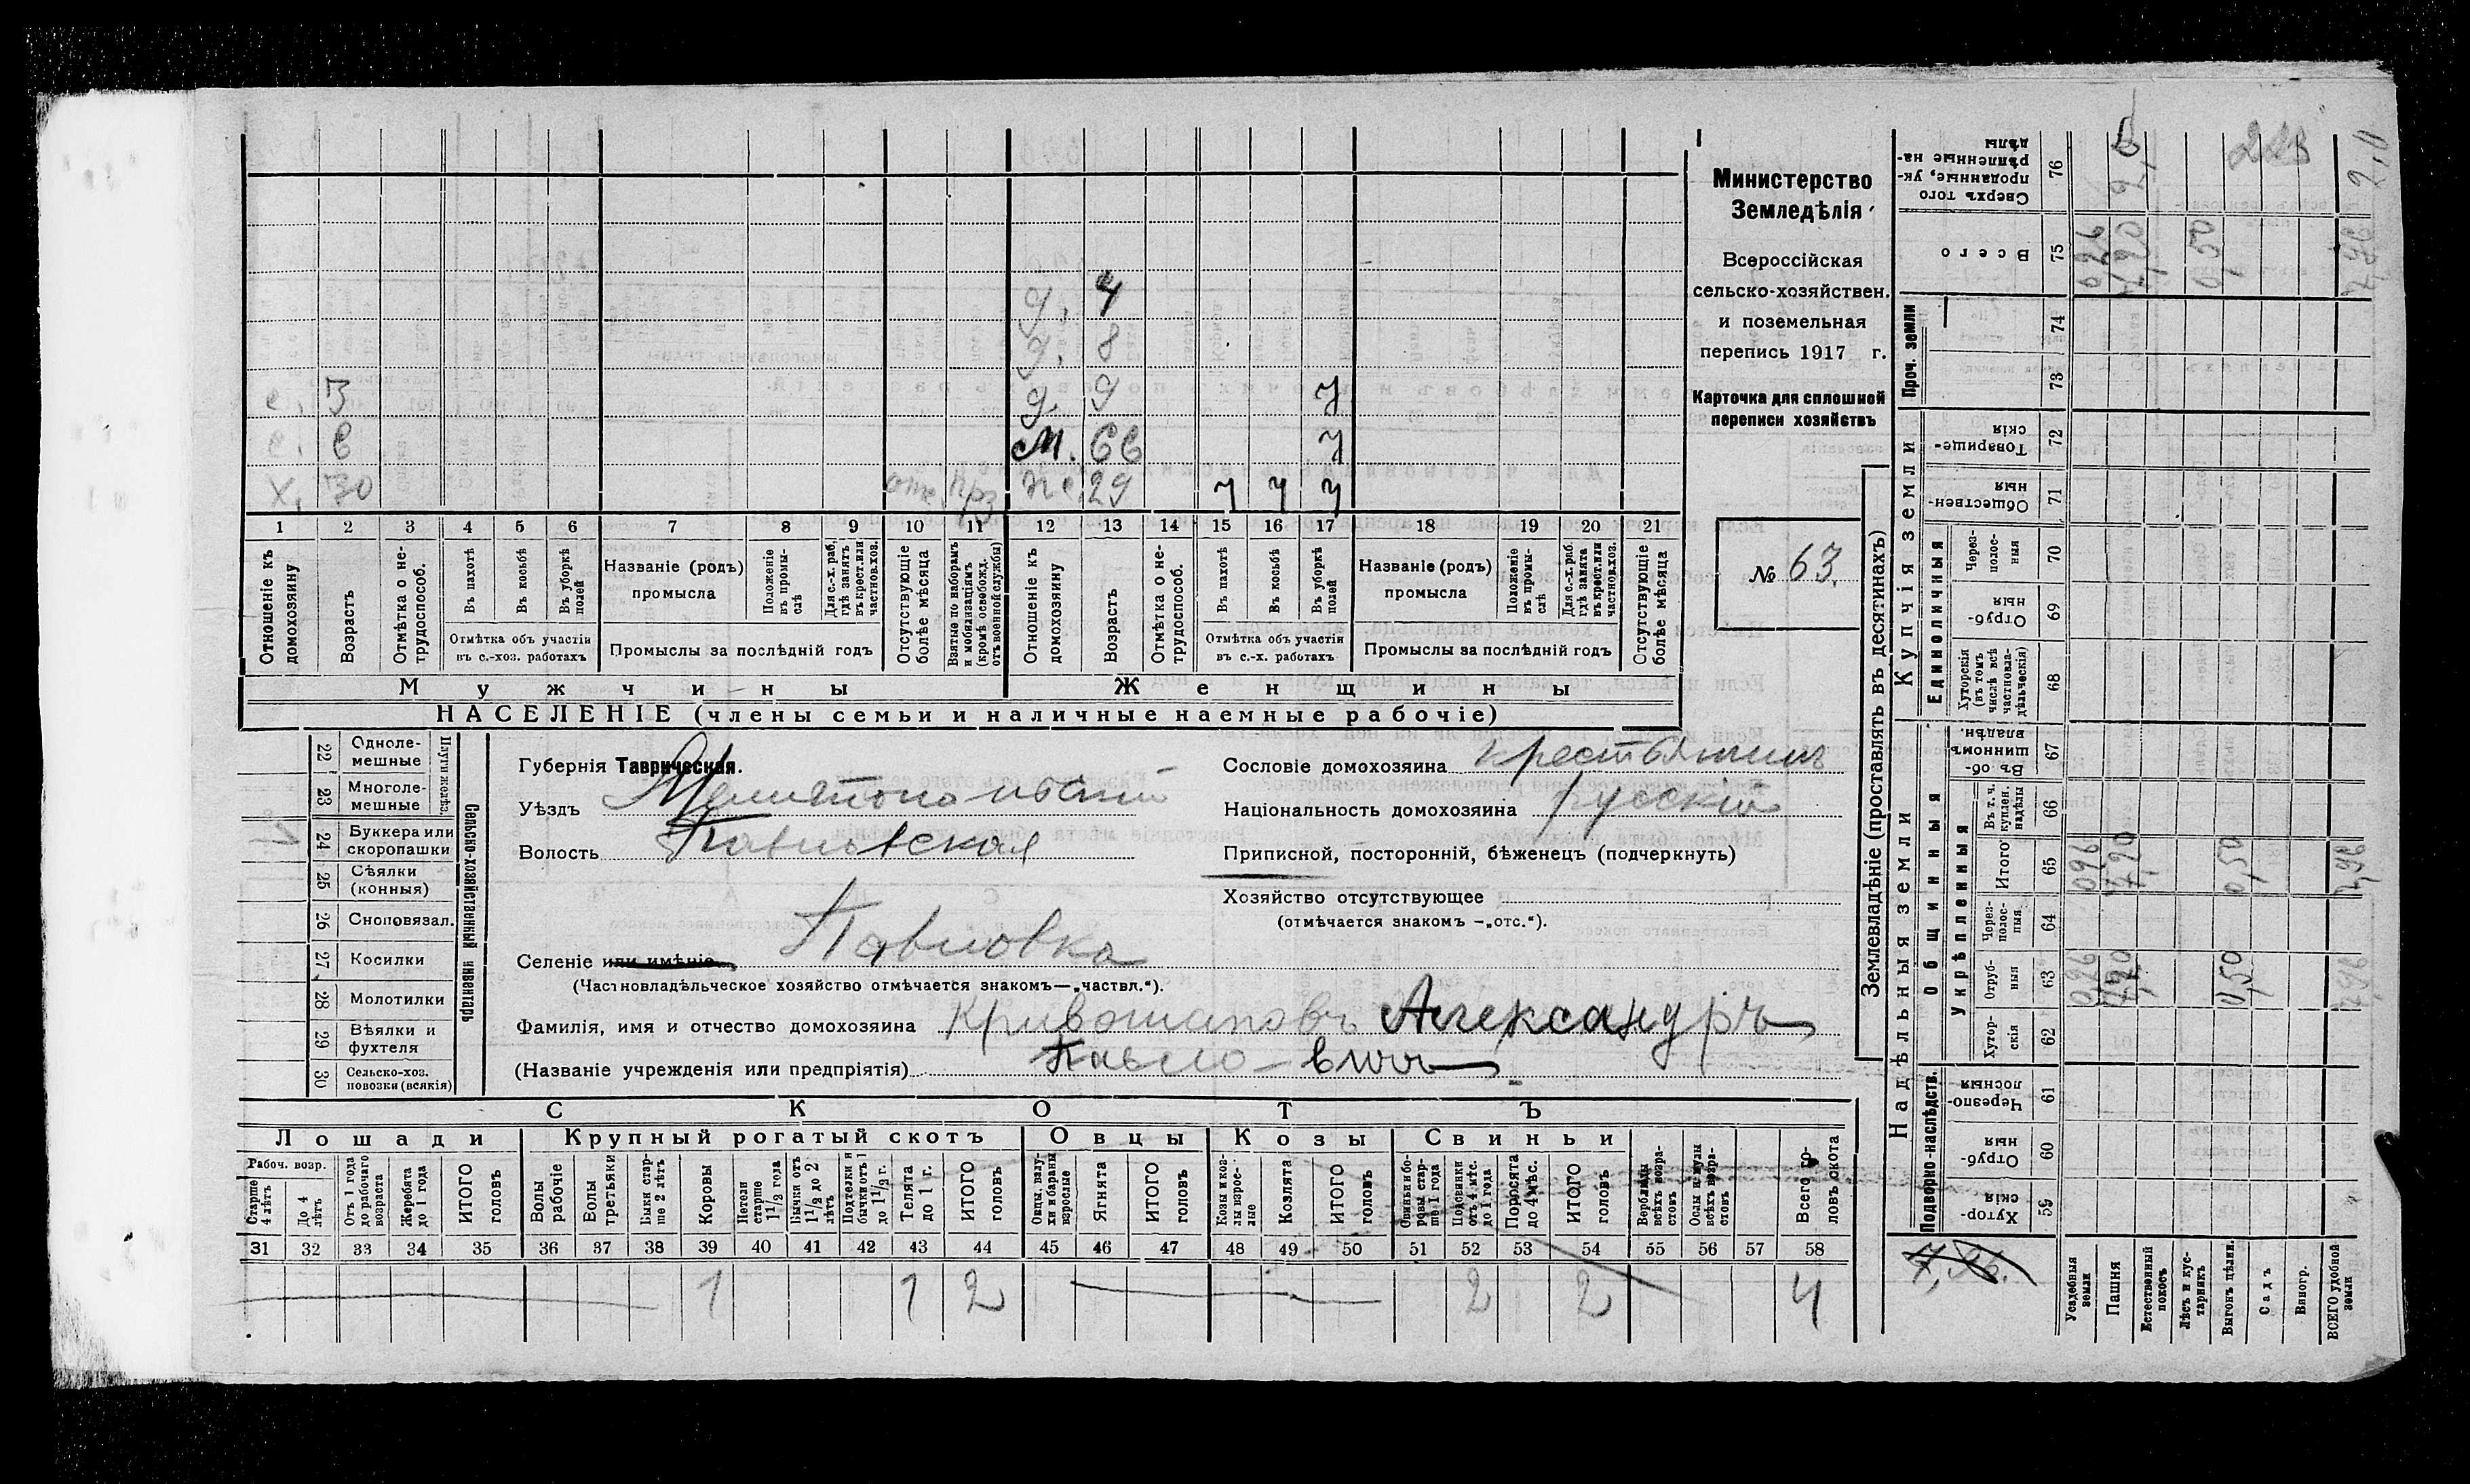 Министерство
Земледѣлія
Всероссійская
сельско-хозяйствен.
и поземельная
перепись 1917 г.
Карточка для сплошной
переписи хозяйствъ
№ 63.
д. 4
д. 8
с. 3 д. 9 у
с. 6 М. 66 у
Х. 30 отс. прз. же. 29 у у у
1 2 3 4 5 6 7 8 9 10 11 12 13 14 15 16 17 18 19 20 21
Отношеніе къ домохозяину
Возрастъ
Отмѣтка о не-трудоспособ.
Въ пахотѣ
Въ косьбѣ
Въ уборкѣ полей
Отмѣтка объ участіи въ с.-хоз. работахъ
Названіе (родъ) промысла
Положеніе въ промы-слѣ
Для с.-х. раб. гдѣ занятъ въ крест. или частнов. хоз.
Промыслы за послѣдній годъ
Отсутствующіе болѣе мѣсяца
Взятые по наборамъ и мобилизаціямъ (кромѣ освобожд. отъ военной службы)
Отношеніе къ домохозяину
Возрастъ
Отмѣтка о не-трудоспособ.
Въ пахотѣ
Въ косьбѣ
Въ уборкѣ полей
Отмѣтка объ участіи въ с.-х. работахъ
Названіе (родъ) промысла
Положеніе въ промы-слѣ
Для с.-х. раб. гдѣ занята въ крест. или частнов. хоз.
Промыслы за послѣдній годъ
Отсутствующіе болѣе мѣсяца
Мужчины Женщины
НАСЕЛЕНІЕ (члены семьи и наличные наемные рабочіе)
22 Одноле-мешные
23 Многоле-мешные
Плуги желѣз.
24 Буккера или скоропашки 1
25 Сѣялки (конныя)
26 Сноповязал.
27 Косилки
28 Молотилки
29 Вѣялки и фухтеля
30 Сельско-хоз. повозки (всякія)
Сельско-хозяйственный инвентарь
Губернія Таврическая.
Уѣздъ Мелитопольскій
Волость Павловская
Селеніе или имѣніе Павловка
(Частновладѣльческое хозяйство отмѣчается знакомъ—„частвл.“).
Фамилія, имя и отчество домохозяина Кривошаповъ Александръ
(Названіе учрежденія или предпріятія) Павло-вичъ
Сословіе домохозяина крестьянинъ
Національность домохозяина русскій
Приписной, посторонній, бѣженецъ (подчеркнуть)
Хозяйство отсутствующее
(отмѣчается знакомъ —„отс.“).
СКОТЪ
Лошади Крупный рогатый скотъ Овцы Козы Свиньи
Рабоч. возр.
Старше 4 лѣтъ
До 4 лѣтъ
Отъ 1 года до рабочаго возраста
Жеребята до 1 года
ИТОГО головъ
Волы рабочіе
Волы третьяки
Быки стар-ше 2 лѣтъ
Коровы
Нетели старше 1½ года
Бычки отъ 1½ до 2 лѣтъ
Подтелки и бычки отъ 1 до 1½ г.
Телята до 1 г.
ИТОГО головъ
Овцы, валу-хи и бараны взрослые
Ягнята
ИТОГО головъ
Козы и коз-лы взрос-лые
Козлята
ИТОГО головъ
Свиньи и бо-ровы стар-ше 1 года
Подсвинки отъ 4 мѣс. до 1 года
Поросята до 4 мѣс.
ИТОГО головъ
Верблюды всѣхъ возра-стовъ
Ослы и мулы всѣхъ возра-стовъ
Всего го-ловъ скота
31 32 33 34 35 36 37 38 39 40 41 42 43 44 45 46 47 48 49 50 51 52 53 54 55 56 57 58
1 1 2 2 2 4
Землевладѣніе (проставлять въ десятинахъ)
Надѣльныя земли Купчія земли Проч. земли
Подворно-наслѣдств. Общинныя Укрѣпленныя Единоличныя
Сверхъ того проданные, ук-рѣпленные на-дѣлы 76 2,0 223 2,0
Всего 75 0,26 7,20 0,50 7,96
74
73
Товарище-скія 72
Обществен-ныя 71
Через-полос-ныя 70
Отруб-ныя 69
Хуторскія (въ томъ числѣ всѣ частновла-дѣльческія) 68
Въ об-шинномъ владѣн. 67
Въ т. ч. куплен. надѣлы 66
Итого 65 0,26 7,20 0,50 7,96
Через-полос-ныя 64
Отруб-ныя 63 0,26 7,20 0,50 7,96
Хутор-скія 62
Черезпо-лосныя 61
Отруб-ныя 60
Хутор-скія 59
7,96.
Усадебныя земли
Пашня
Естественный покосъ
Лѣсъ и кус-тарникъ
Выгонъ цѣлин.
Садъ
Виногр.
ВСЕГО удобной земли